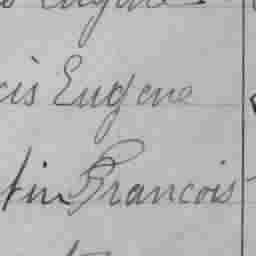 Eugène
cis Eugene
tin Francois